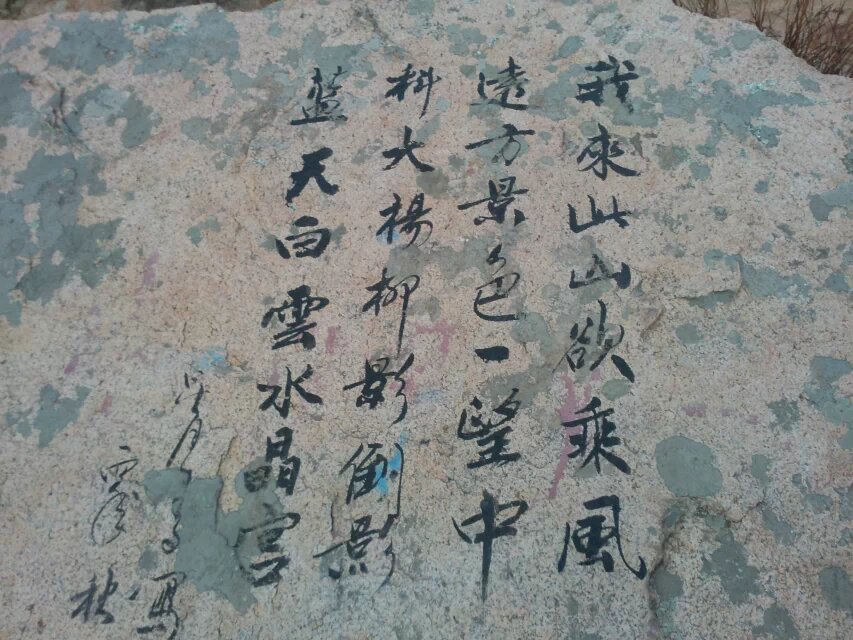 我來此山欲乘風
遠方景色一望中
科大楊柳影倒影
藍天白雲水晶宮